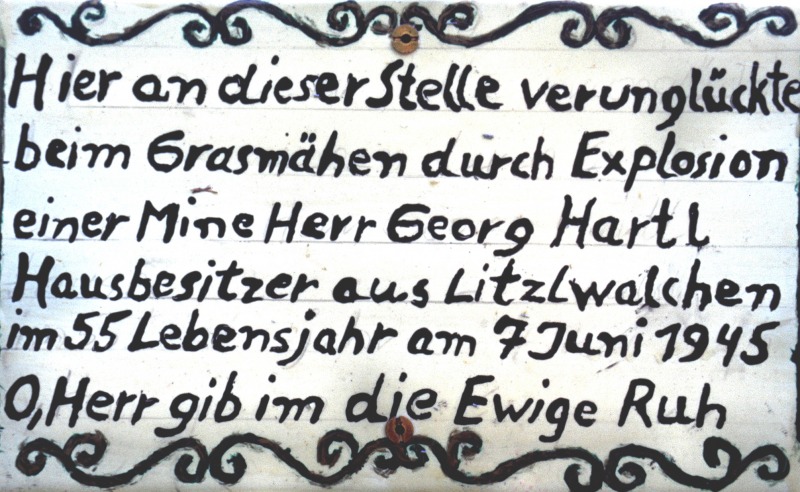 Hier an dieser Stelle verunglückte
beim Grasmähen durch Explosion
einer Mine Herr Georg Hartl
Hausbesitzer aus Litzlwalchen
im 55 Lebensjahr am 7 Juni 1945
O, Herr gib im die Ewige Ruh